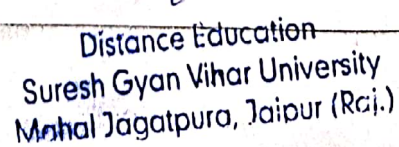 Distance Education
Suresh Gyan Vihar University
Mahal Jagatpura, Jaipur (Raj.)